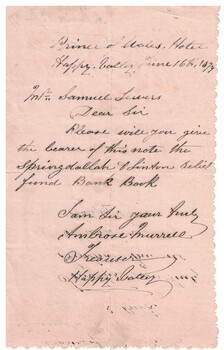 Prince of Wales Hotel
Happy Valley June 16th, 187
Samuel
Dear Sir
Please will you give
the bearer of this note the
Springdallah & Linton relief
fund Bank Book
I am Sir your truly
Ambrose Murrell
Happy Valley